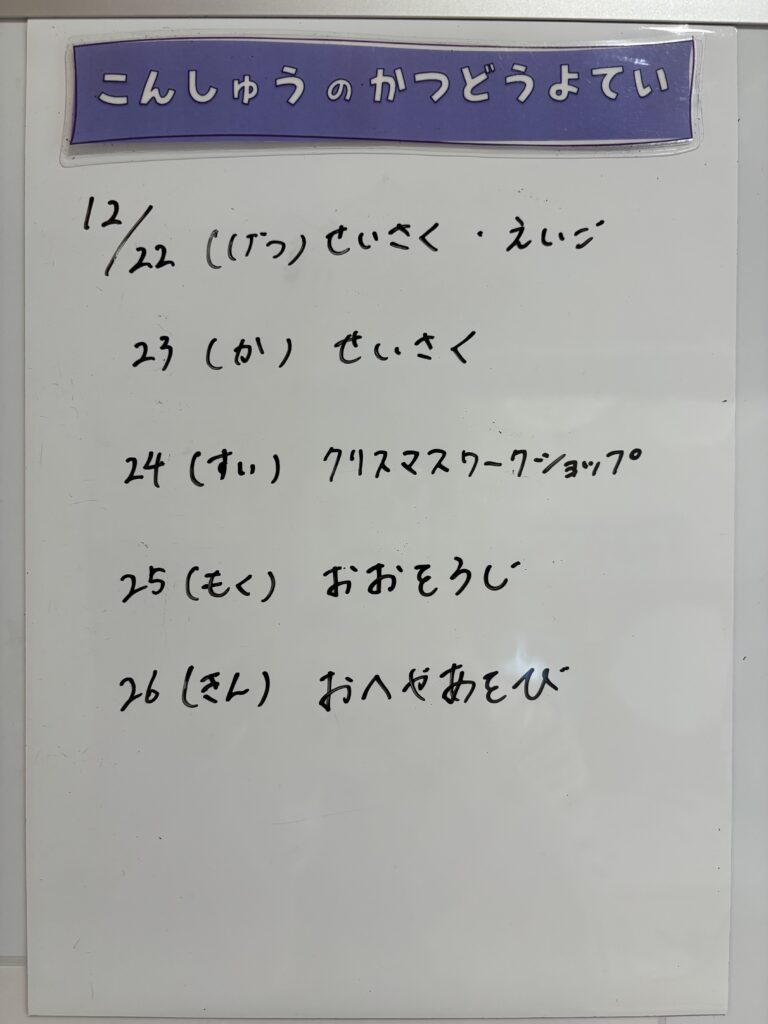 こんしゅうのかつどうよてい
12/22 (げつ) せいさく・えいご
23 (か) せいさく
24 (すい) クリスマスワークショップ
25 (もく) おおそうじ
26 (きん) おへやあそび